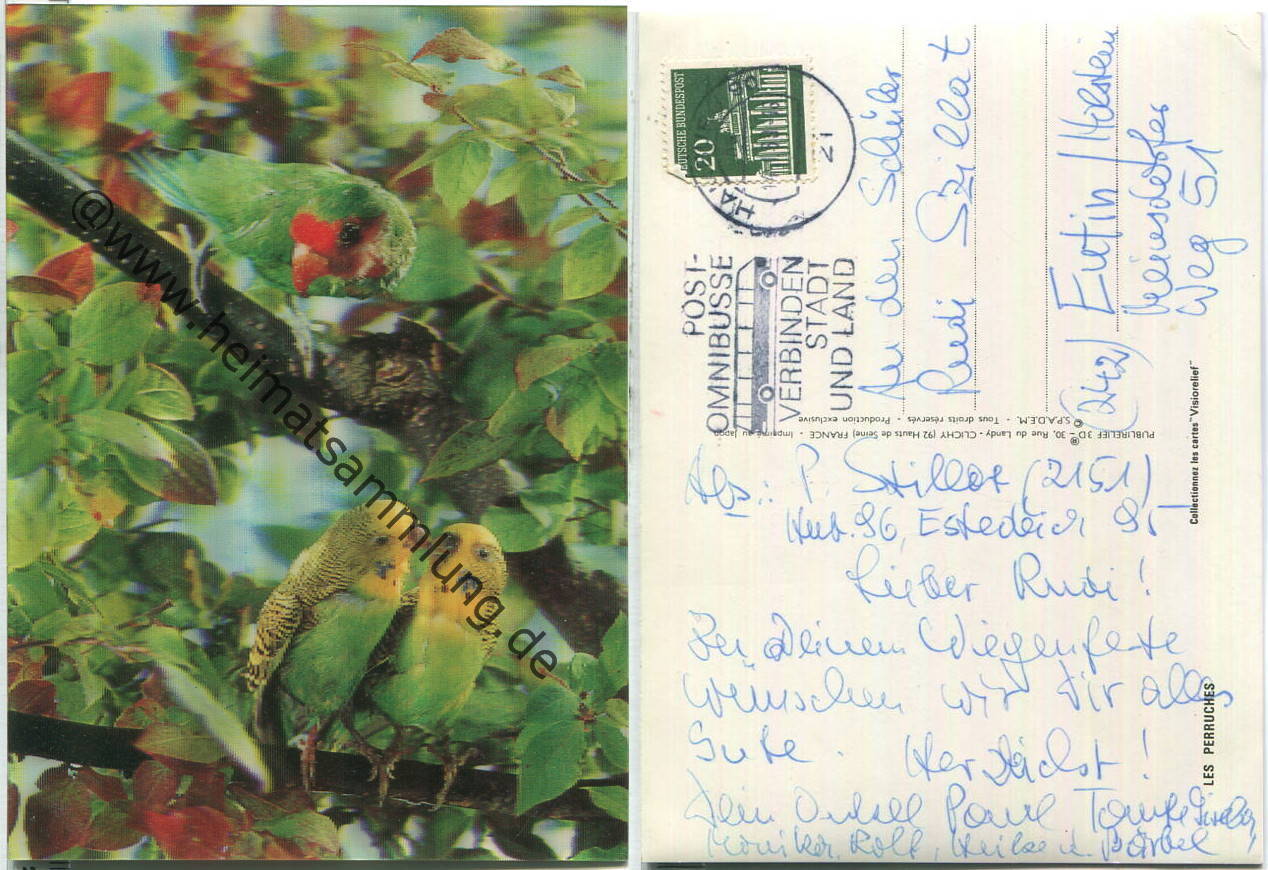 @www.heimatsammlung.de
DEUTSCHE BUNDESPOST
20
HA
21
POST-
OMNIBUSSE
VERBINDEN
STADT
UND LAND
An den Schüler
Rudi Szillat
(242) Eutin/Holstein
Weg 51
PUBLIRELIEF 3D ® 30, Rue du Landy - CLICHY (92 Hauts de Seine) FRANCE - Imprimé au Japon
© S.P.A.D.E.M. - Tous droits réservés - Production exclusive
Collectionnez les cartes "Visiorelief"
LES PERRUCHES
Abs.: P. (2151)
96, Estebrügge
Lieber Rudi!
Zu Deinem Wiegenfeste
wünschen wir Dir alles
Gute. Herzlichst!
Dein Onkel Paul Tante
Monika, Rolf, Heike u. Bärbel